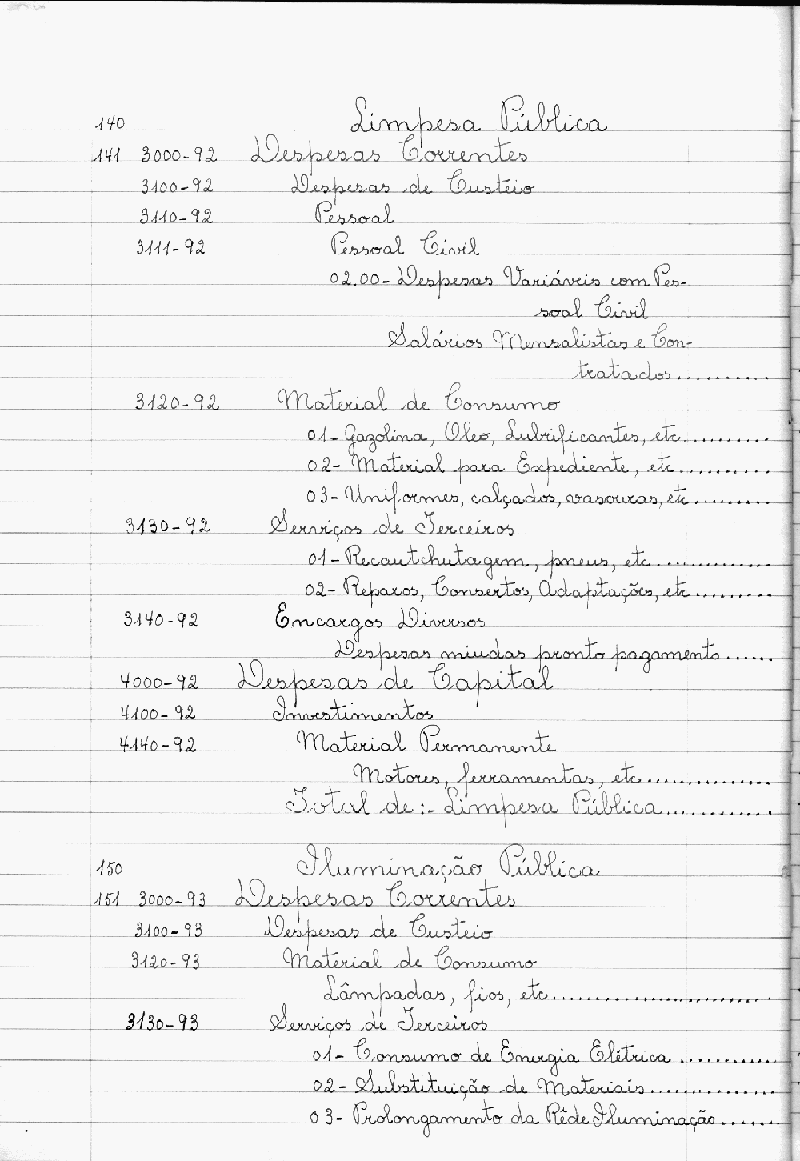 140 Limpesa Pública
141 3000-92 Despesas Correntes
3100-92 Despesas de Custeio
3110-92 Pessoal
3111-92 Pessoal Civil
02.00- Despesas Variáveis com Pes-
soal Civil
Salários Mensalistas e Con-
tratados..........
3120-92 Material de Consumo
01- Gazolina, Oleo, Lubrificantes, etc..........
02- Material para Expediente, etc..........
03- Uniformes, calçados, vasouras, etc.........
3130-92 Serviços de Terceiros
01- Recautchutagem, pneus, etc.............
02- Reparos, Consertos, Adaptações, etc.........
3140-92 Encargos Diversos
Despesas miudas pronto pagamento......
4000-92 Despesas de Capital
4100-92 Investimentos
4140-92 Material Permanente
Motores, ferramentas, etc.............
Total de:- Limpesa Pública............
150 Iluminação Pública
151 3000-93 Despesas Correntes
3100-93 Despesas de Custeio
3120-93 Matérial de Consumo
Lâmpadas, fios, etc..........................
3130-93 Serviços de Terceiros
01- Consumo de Energia Elétrica............
02- Substituição de Materiais...............
03- Prolongamento da Rêde Iluminação.......